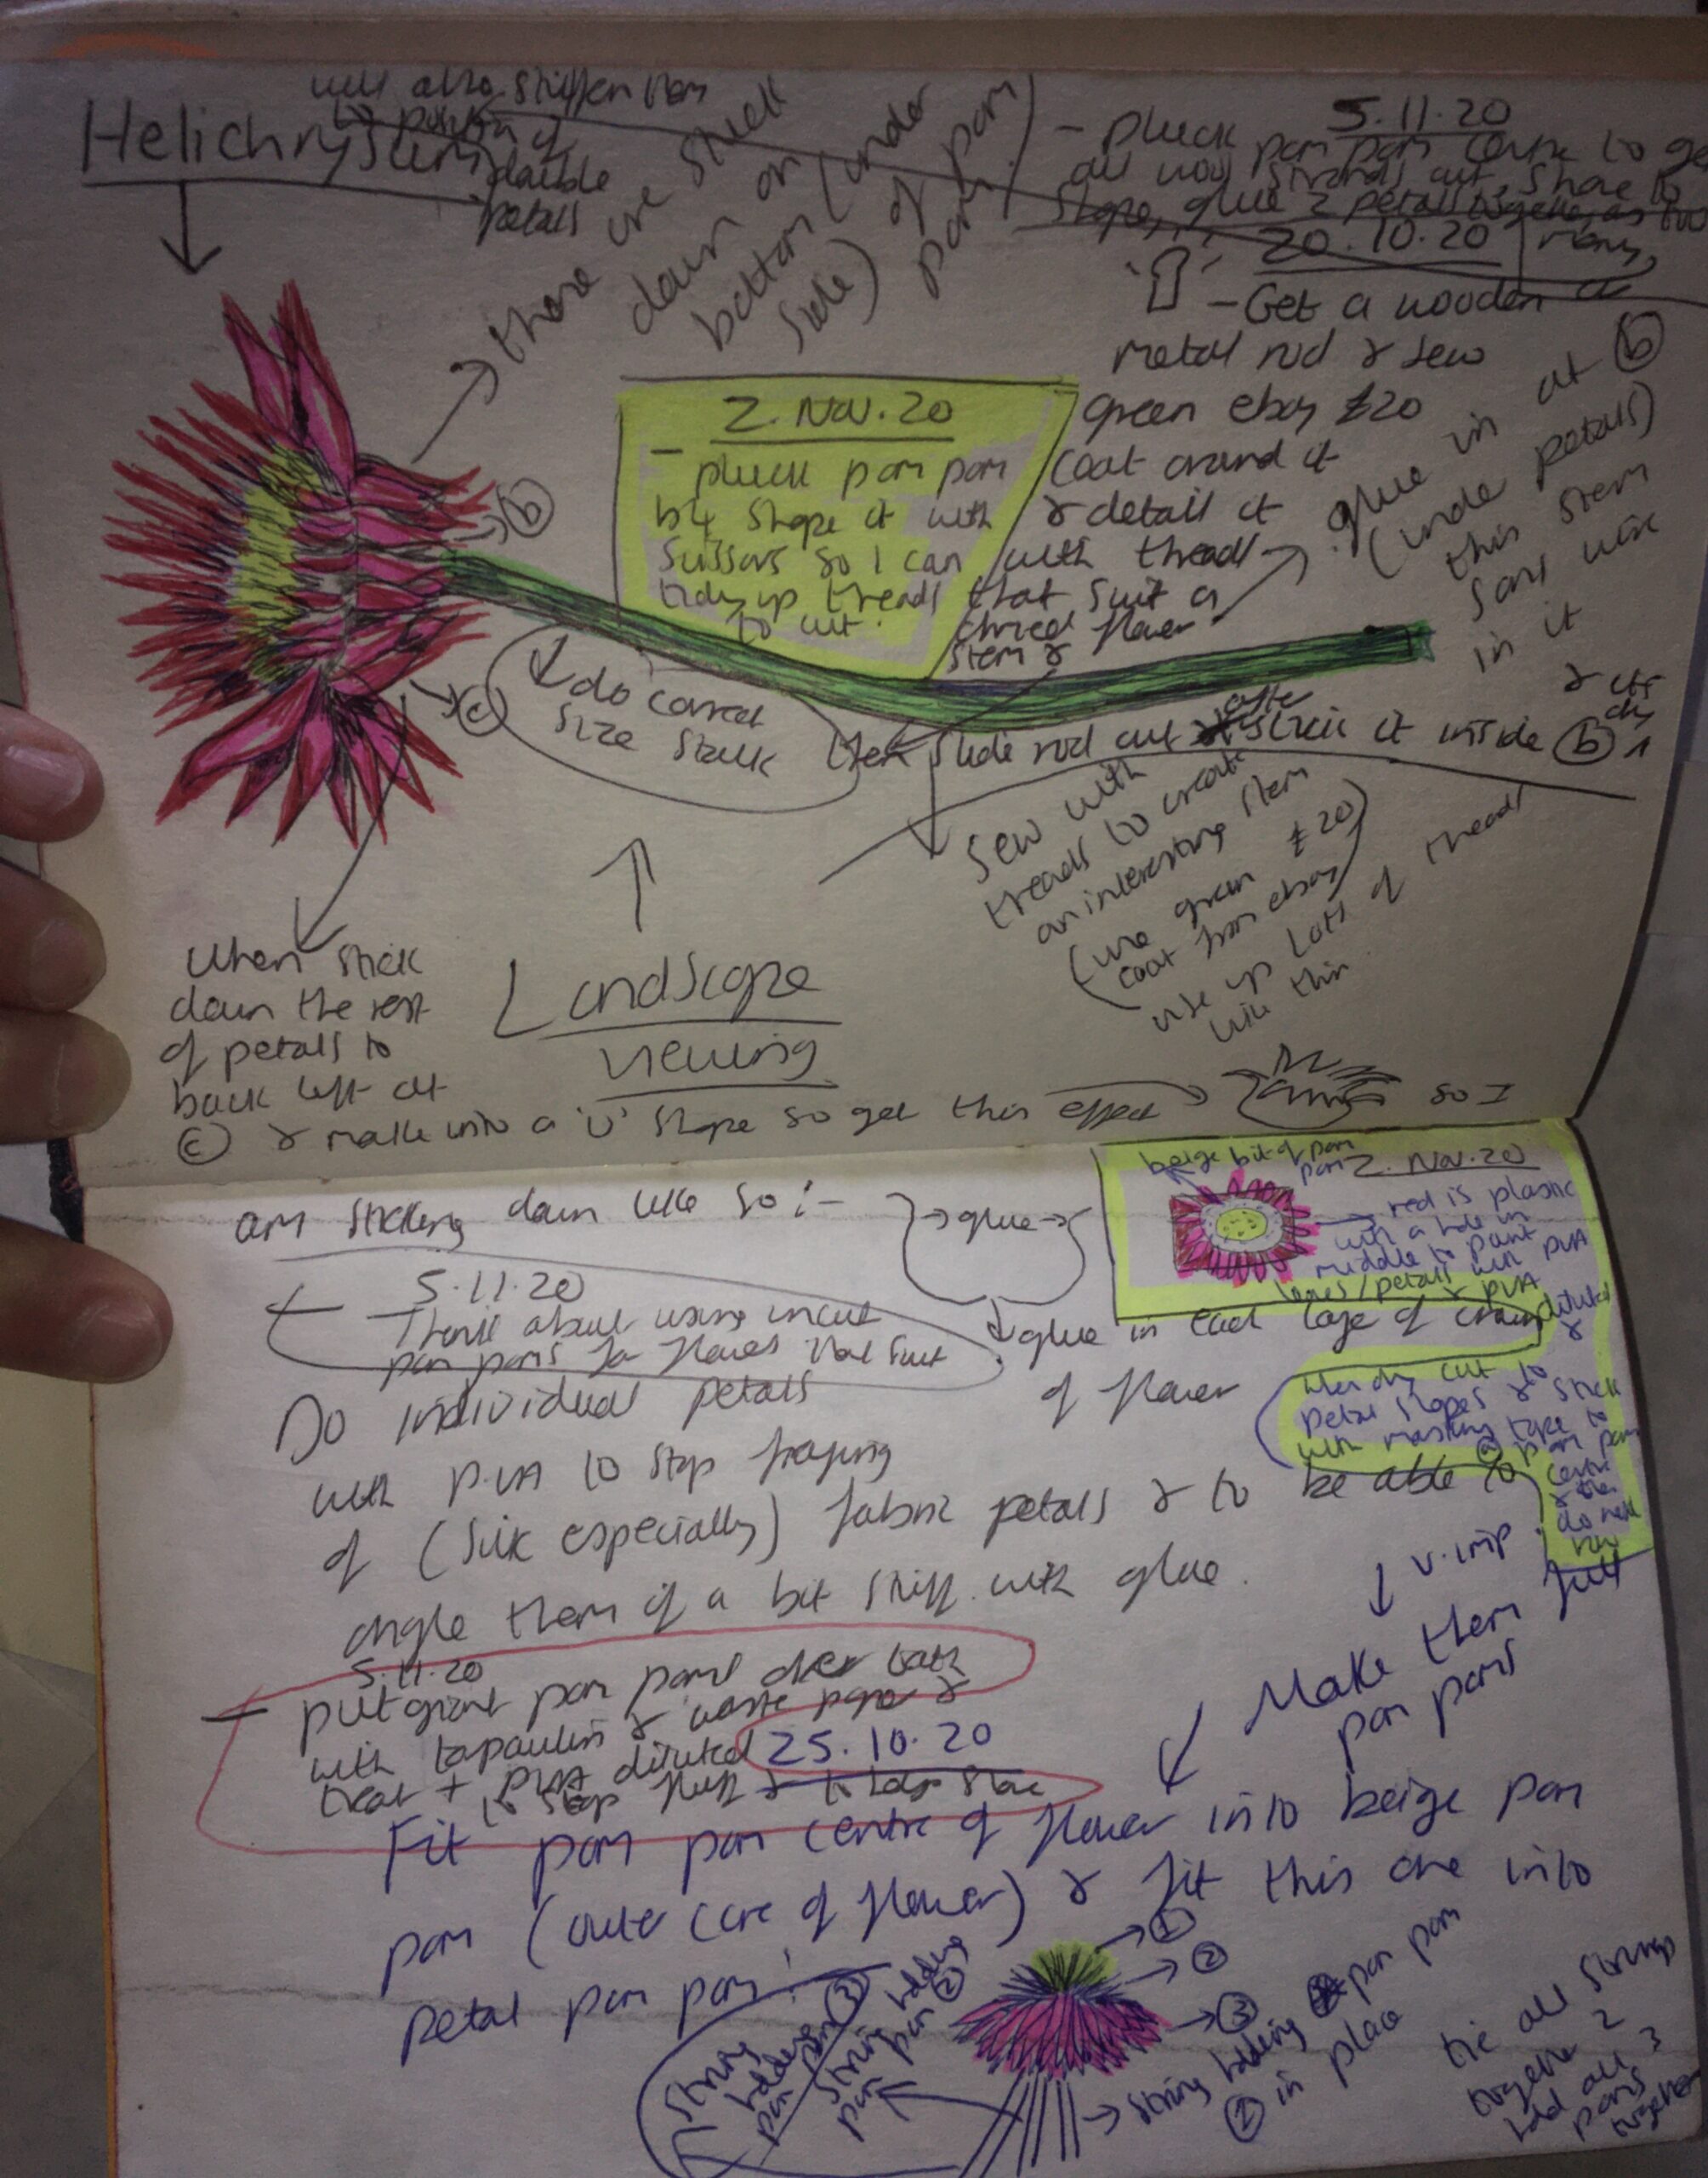 will also stiffen them
Helichrysum
to position of
double
petals
these are stuck
down on
bottom (under
side) of pom
pom
5.11.20
- pluck pom pom centre to get
all wool strands out, shape to
shape, glue 2 petals together, as too
many
20.10.20
- Get a wooden or
metal rod & sew
green ebay £20
coat around it
& detail it
with thread
that suit a
flower
stem &
2. Nov. 20
- pluck pom pom
b4 shape it with
scissors so I can
tidy up threads
to cut.
glue in at (b)
(under petals)
this stem
in it
(b)
(c)
do correct
size stalk
slide rod out after stick it inside (b)
& it's
dry
Sew with
threads to create
an interesting stem
(use green £20
coat from ebay)
use up lots of thread
with this
When stick
down the rest
of petals to
back left at
(c) & make into a 'U' shape so get this effect so I
Landscape
viewing
am sticking down like so :-
glue
glue in each layer of
of flower
beige bit of pom
pom
2. Nov. 20
red is plastic
with a hole in
middle to paint
petals with PVA
& PVA
diluted
&
when dry cut to
petal shapes & stick
with masking tape to
pom pom
centre
& then
do next
row
5.11.20
- Think about using uncut
pom poms for flowers that suit
Do individual petals
with PVA to stop fraying
of (silk especially) fabric petals & to be able to
angle them if a bit stiff with glue.
v. imp
Make them full
pom poms
5.11.20
- put giant pom poms over bath
with tapaulin & waste paper &
treat + PVA diluted
to stop fluff & to keep shape
25.10.20
Fit pom pom centre of flower into beige pom
pom (outer core of flower) & fit this one into
petal pom pom!
(1)
(2)
(3)
string holding pom pom
(1) in place
string
holding
pom pom (3)
string holding
pom pom (2)
tie all strings
together 2
hold all 3
poms
together